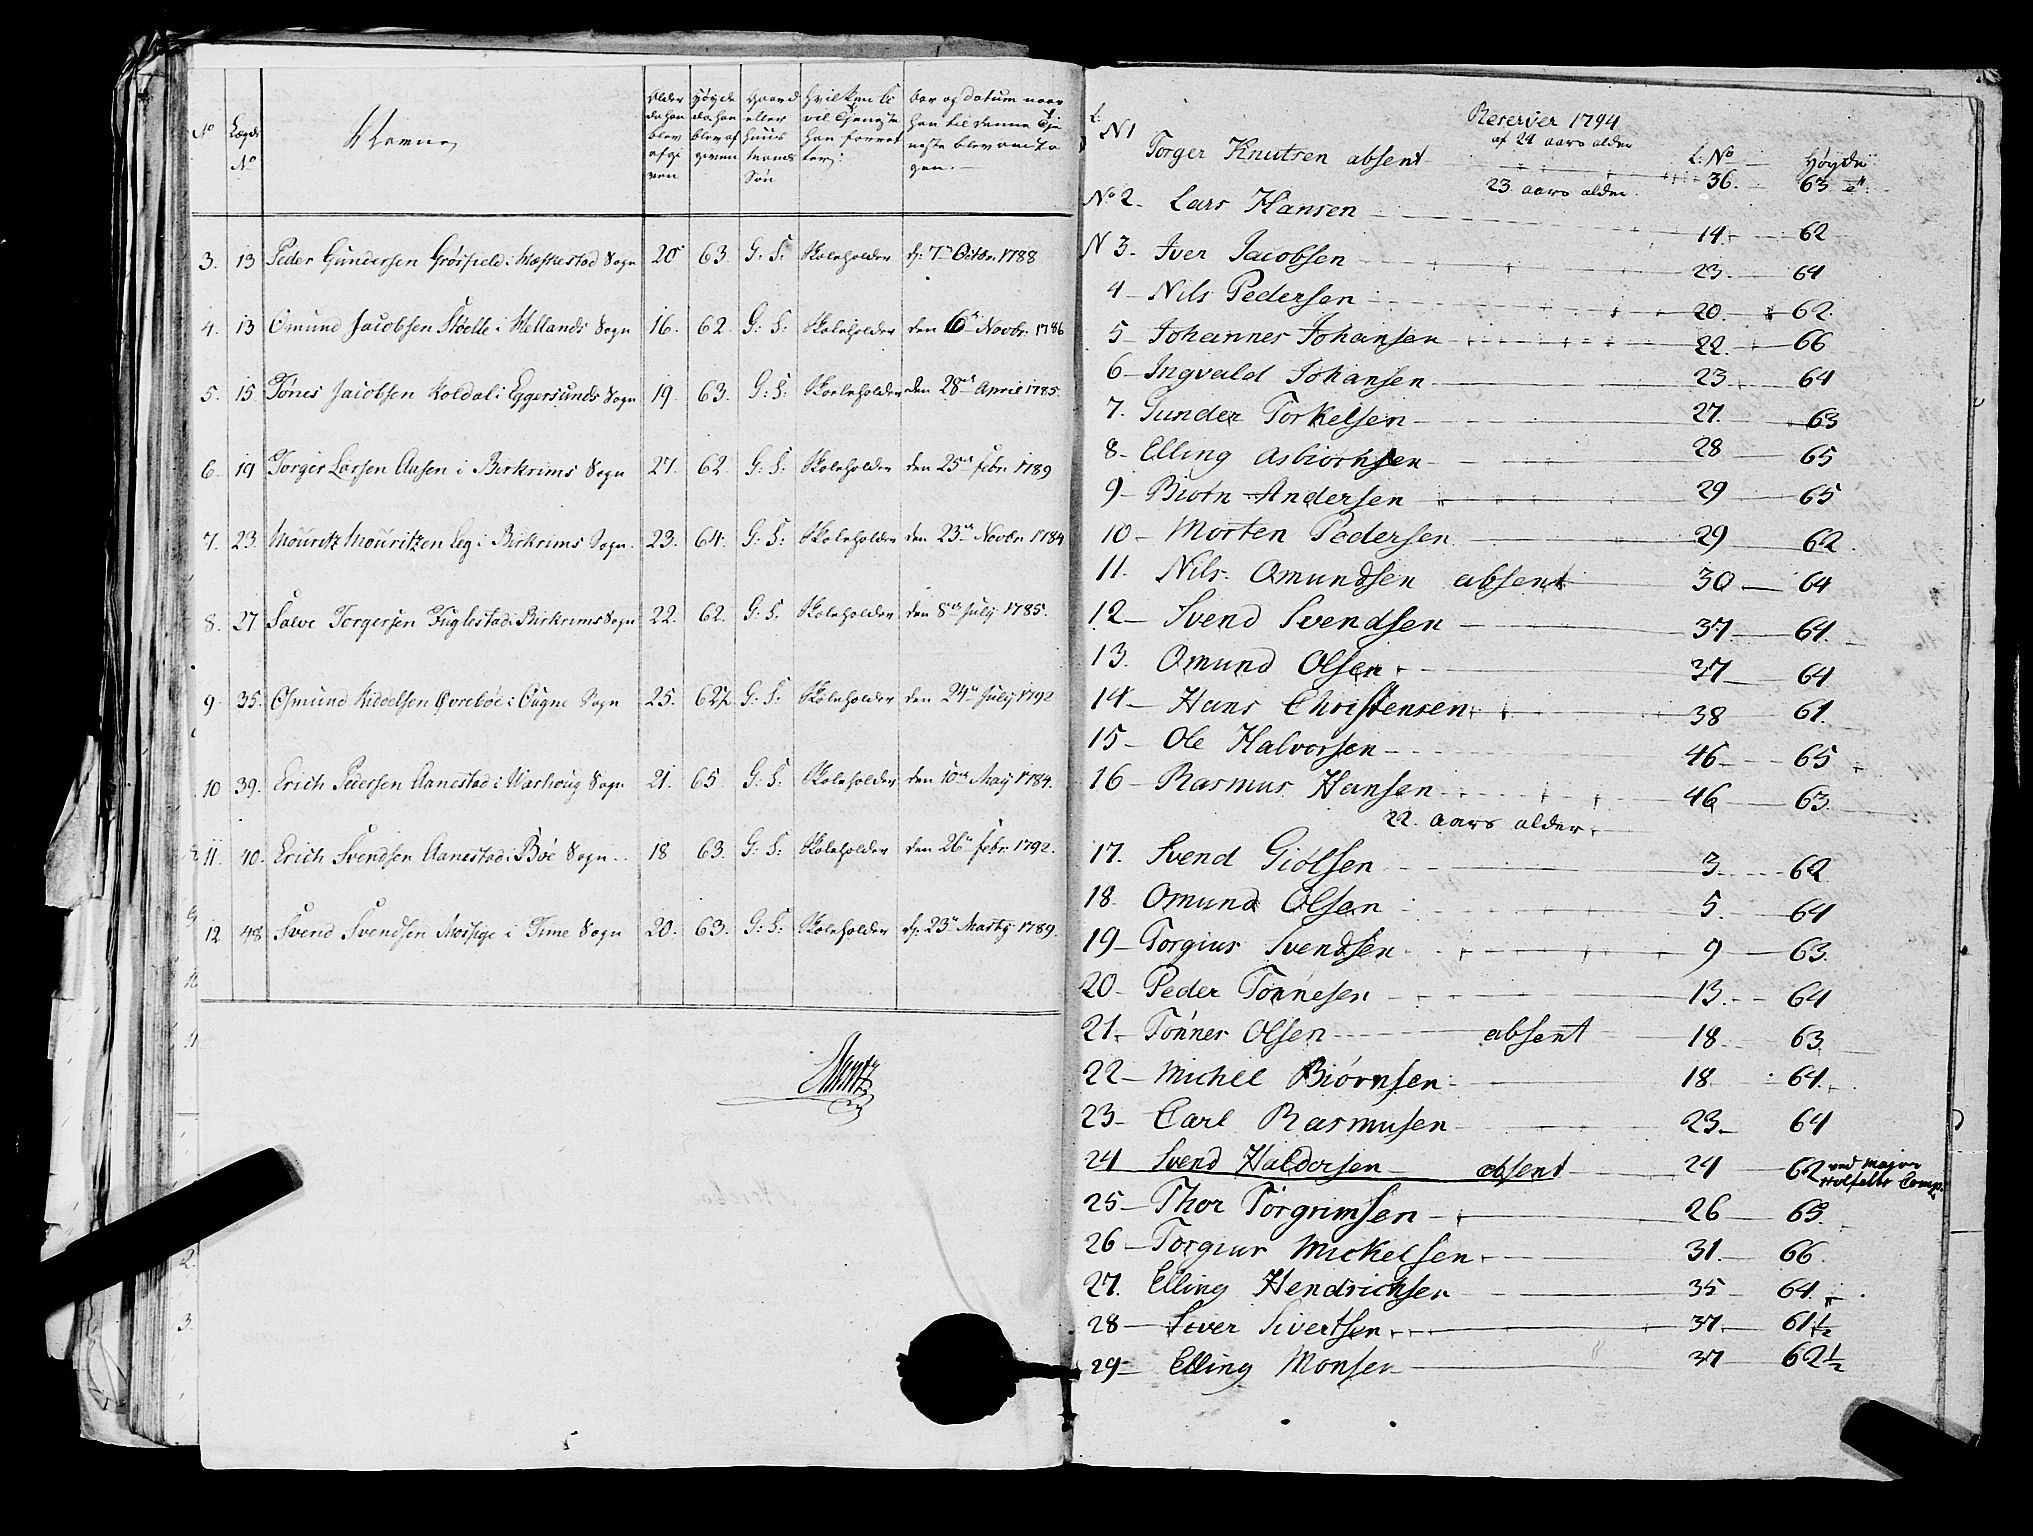 No
Lægds No
Navne
Alder da han blev afgi ven
Høyde da han blev af given
gaard eller huus mands Søn
hvilken ci vil Tjeneste han forret ter:
Aar og datum naar han til denne Tje neste blev anta gen.
3. 13 Peder Gundersen Grøsfield i Hæskestad Sogn 20 63. G: S: Skoleholder d: 7de Octbr. 1788
4. 13 Omund Jacobsen Støelle i Hellands Sogn 16. 62. G: S: Skoleholder den 6te Novbr. 1786
5. 15 Tønes Jacobsen Koldal i Eggersunds Sogn 19. 63. G: S: Skoleholder den 28de April 1785.
6. 19 Torger Larsen Aasen i Birkrims Sogn 27. 62. G: S: Skoleholder den 25de febr. 1789
7. 23. Mouritz Mouritzen Leg i Birkrims Sogn. 23. 64. G: S: Skoleholder den 23de Novbr. 1784
8. 27 Salve Torgersen Fuglestad i Birkrims Sogn 22. 62. G: S. Skoleholder den 8de July 1785.
9 35. Osmund Kiddelsen Øvrebøe i Ougne Sogn 25. 62½ G: S. Skoleholder den 24de July 1792
10 39. Erich Pedersen Aanestad i Warhoug Sogn 21. 65 G: S: Skoleholder den 10de May 1784.
11. 40. Erich Svendsen Aanestad i Bøe Sogn 18 63. G: S: Skoleholder den 26de febr. 1792.
12 48 Svend Svendsen Mossige i Time Sogn 20. 63. G: S: Skoleholder d: 23de Marty 1789.
Reserver 1794
af 24 aars alder
L: No Høyde
N 1 Torger Knutsen absent 36. 63
23 aars alder.
No 2. Lars Hansen 14. 62
N 3. Iver Jacobsen 23. 64
4 Nils Pedersen 20. 62.
5 Johannes Johansen 22. 66
6 Ingvald Johansen 23. 64
7. Gunder Torkelsen 27. 63
8 Elling Asbiornsen 28 65
9 Biørn Andersen 29 65
10 Morten Pedersen 29 62.
11. Nils Omundsen absent 30 64
12 Svend Svendsen 37. 64.
13. Omund Olsen 37 64
14 Hans Christensen 38 61.
15 Ole Halvorsen 46 65
16 Rasmus Hansen 46 63.
22. aars alder.
17. Svend Giølsen 3. 62
18. Omund Olsen 5. 64
19 Torgius Svendsen 9 63.
20 Peder Tønnesen 13. 64
21. Tønnes Olsen absent 18. 63.
22 Michel Biørnsen 18. 64.
23 Carl Rasmusen 23 64
24 Svend Haldorsen absent 24 62 ved Major
Comp:
25 Thor Torgrimsen 26 63.
26 Torgius Mickelsen 31. 66.
27. Elling Hendrichsen 35 64.
28 Siver Sivertsen 37. 61½
29 Elling Monsen 37 62½